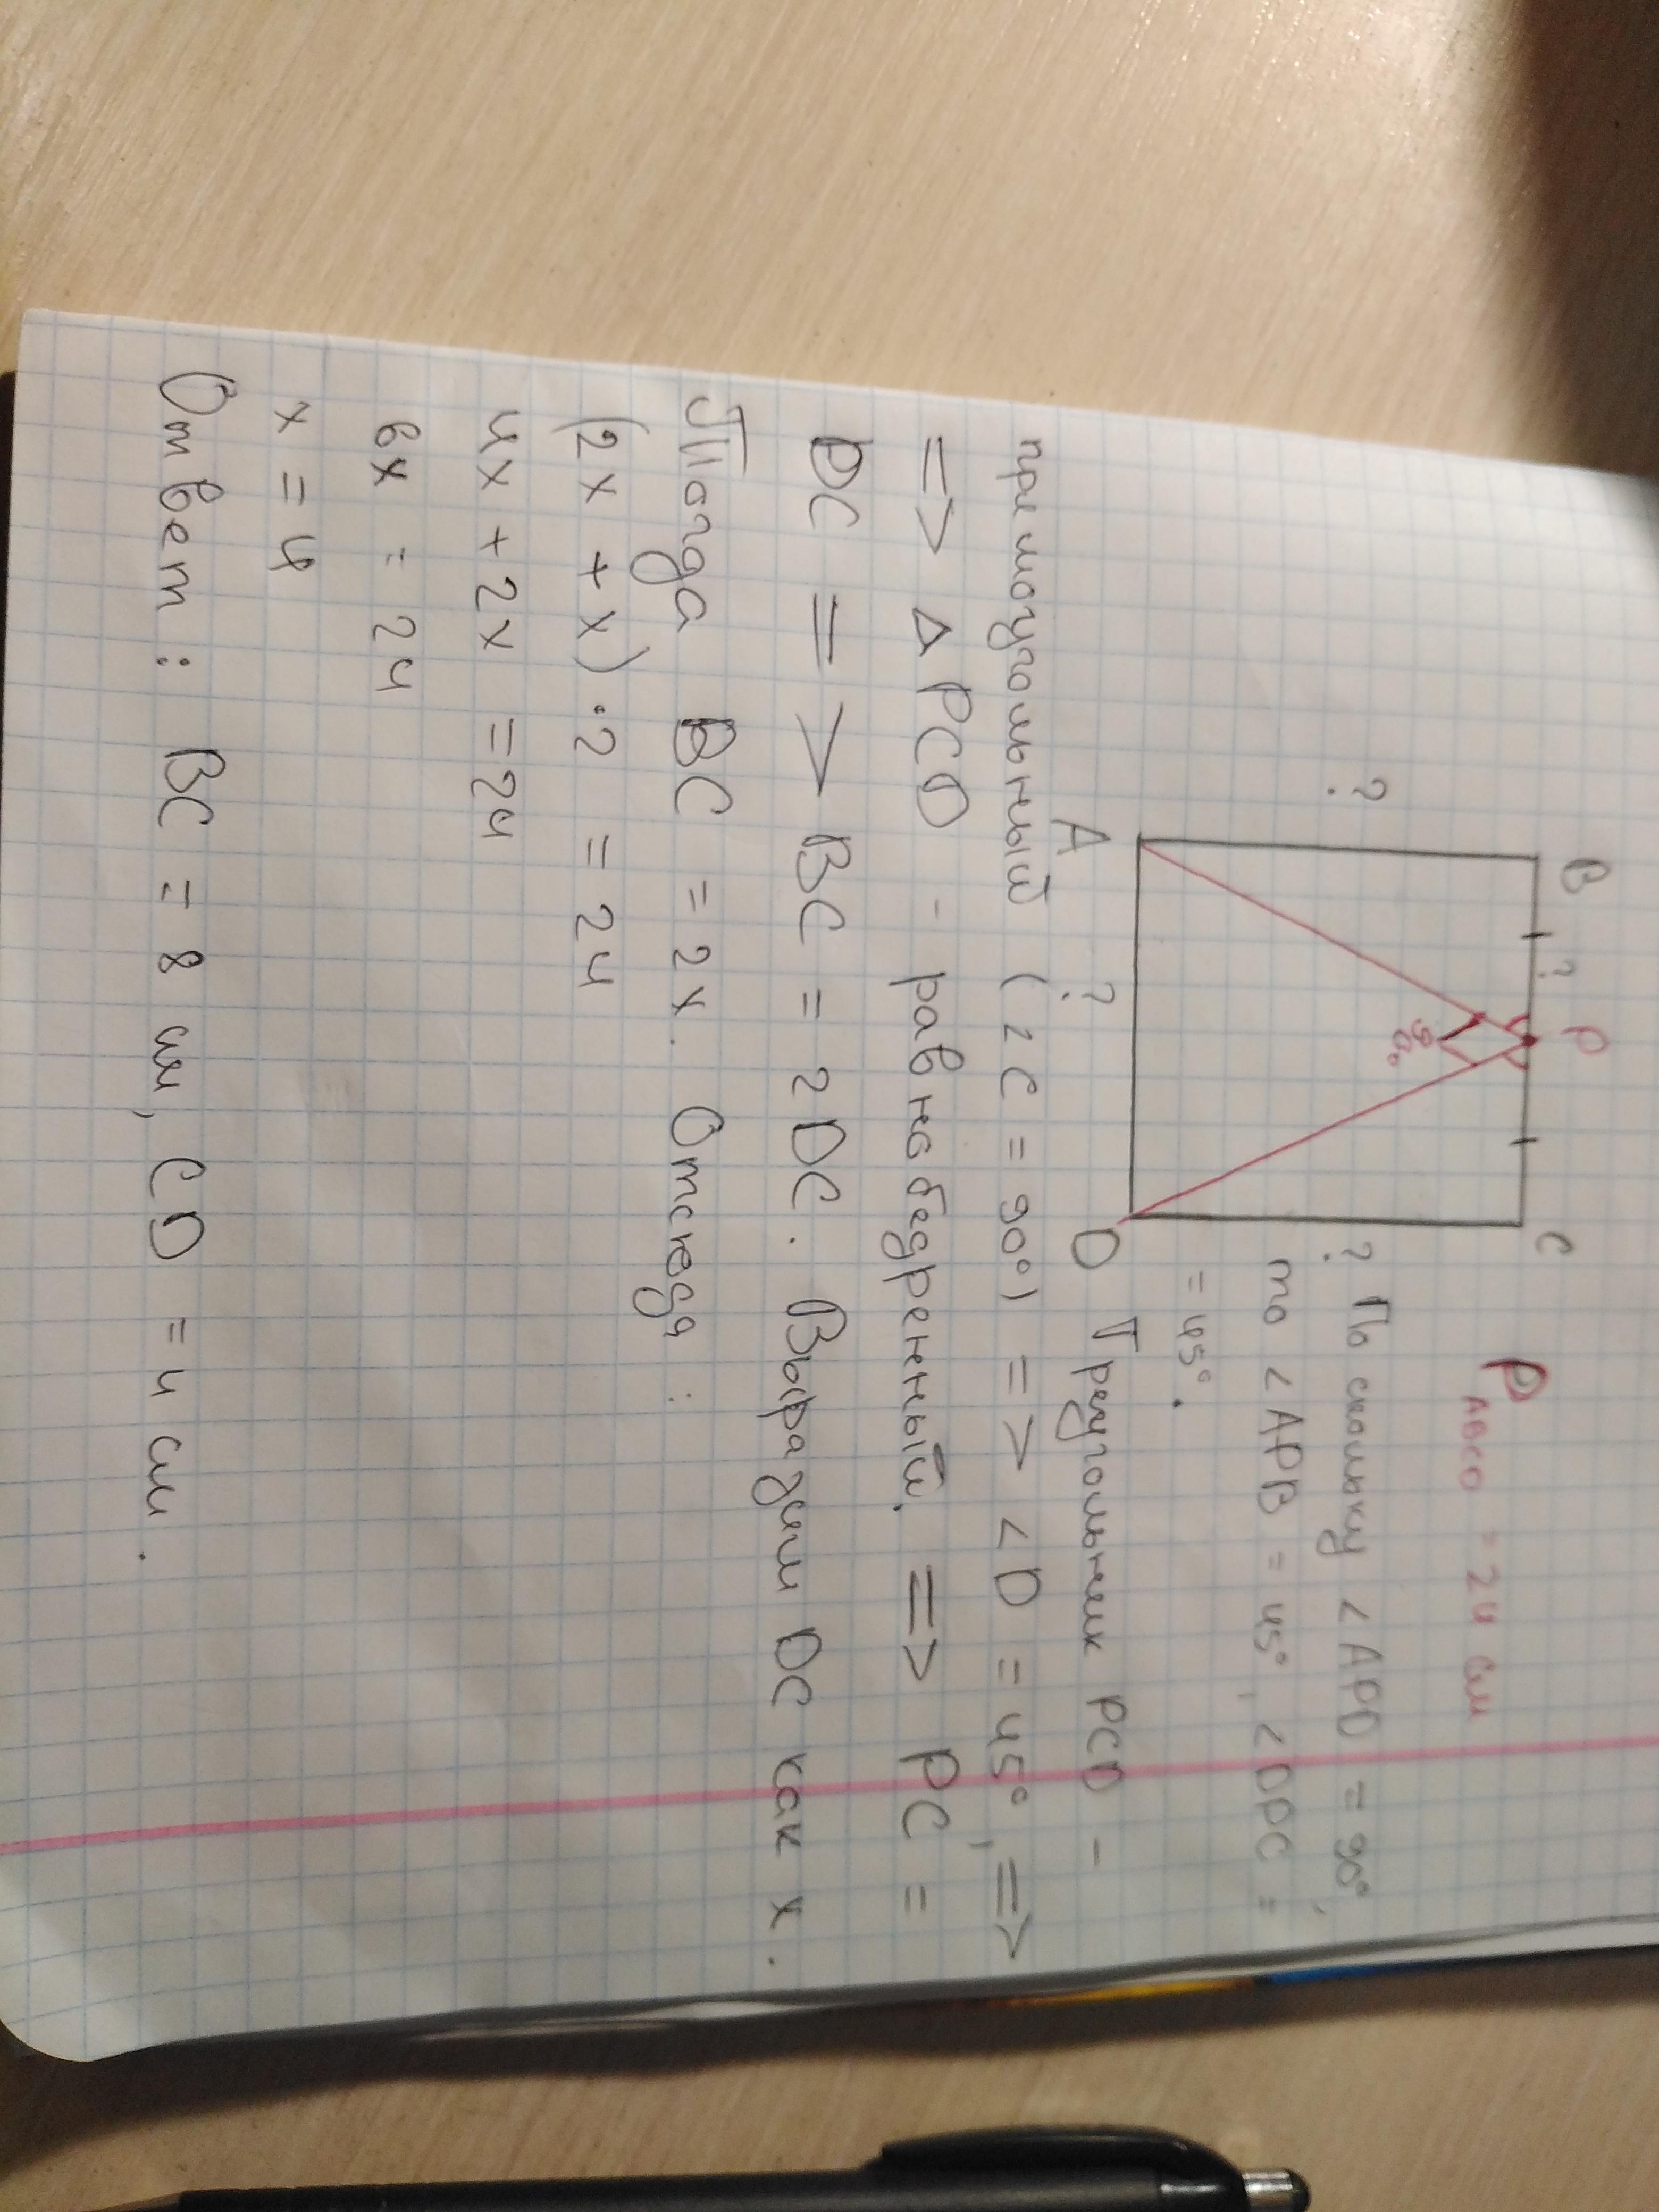 P ABCD = 24 см
B ? P C
90°
? ?
A ? D
Поскольку ∠APD = 90°,
то ∠APB = 45°, ∠DPC =
= 45°.
Треугольник PCD -
прямоугольный (∠C = 90°) => ∠D = 45°, =>
=> Δ PCD - равнобедренный. => PC =
DC => BC = 2DC. Выразим DC как x.
Тогда BC = 2x. Отсюда :
(2x + x) · 2 = 24
4x + 2x = 24
6x = 24
x = 4
Ответ : BC = 8 см, CD = 4 см.